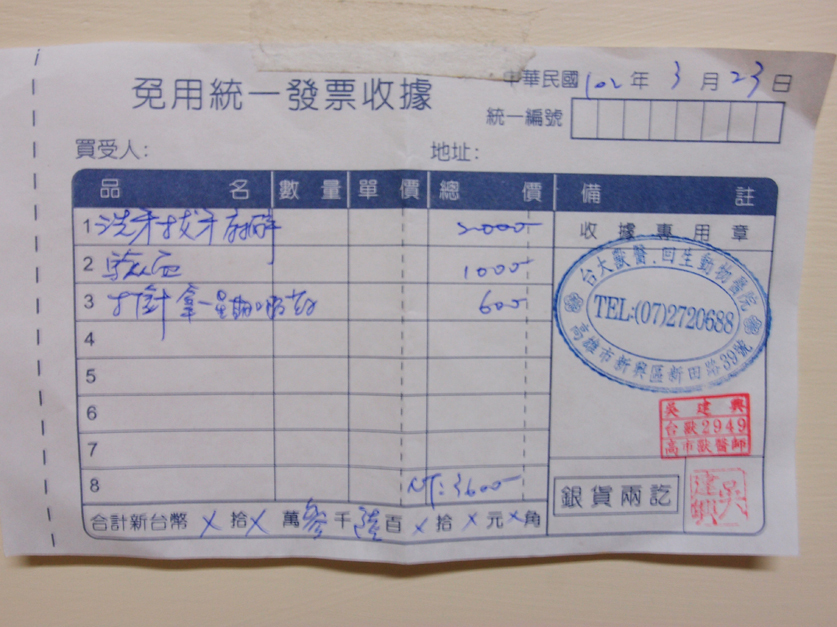 免用統一發票收據
中華民國102年3月23日
統一編號
買受人：
地址：
品名 數量 單價 總價 備註
1 洗牙拔牙麻醉 2000-
收據專用章
2 驗血 1000-
3 打針拿一星期 600-
台大獸醫.回生動物醫院
TEL:(07)2720688
高雄市新興區新田路39號
4
5
6
7
8 NT:3600-
吳建興
台獸2949
高市獸醫師
銀貨兩訖
吳建興
合計新台幣 X 拾 X 萬 參 千 陸 百 X 拾 X 元 X 角